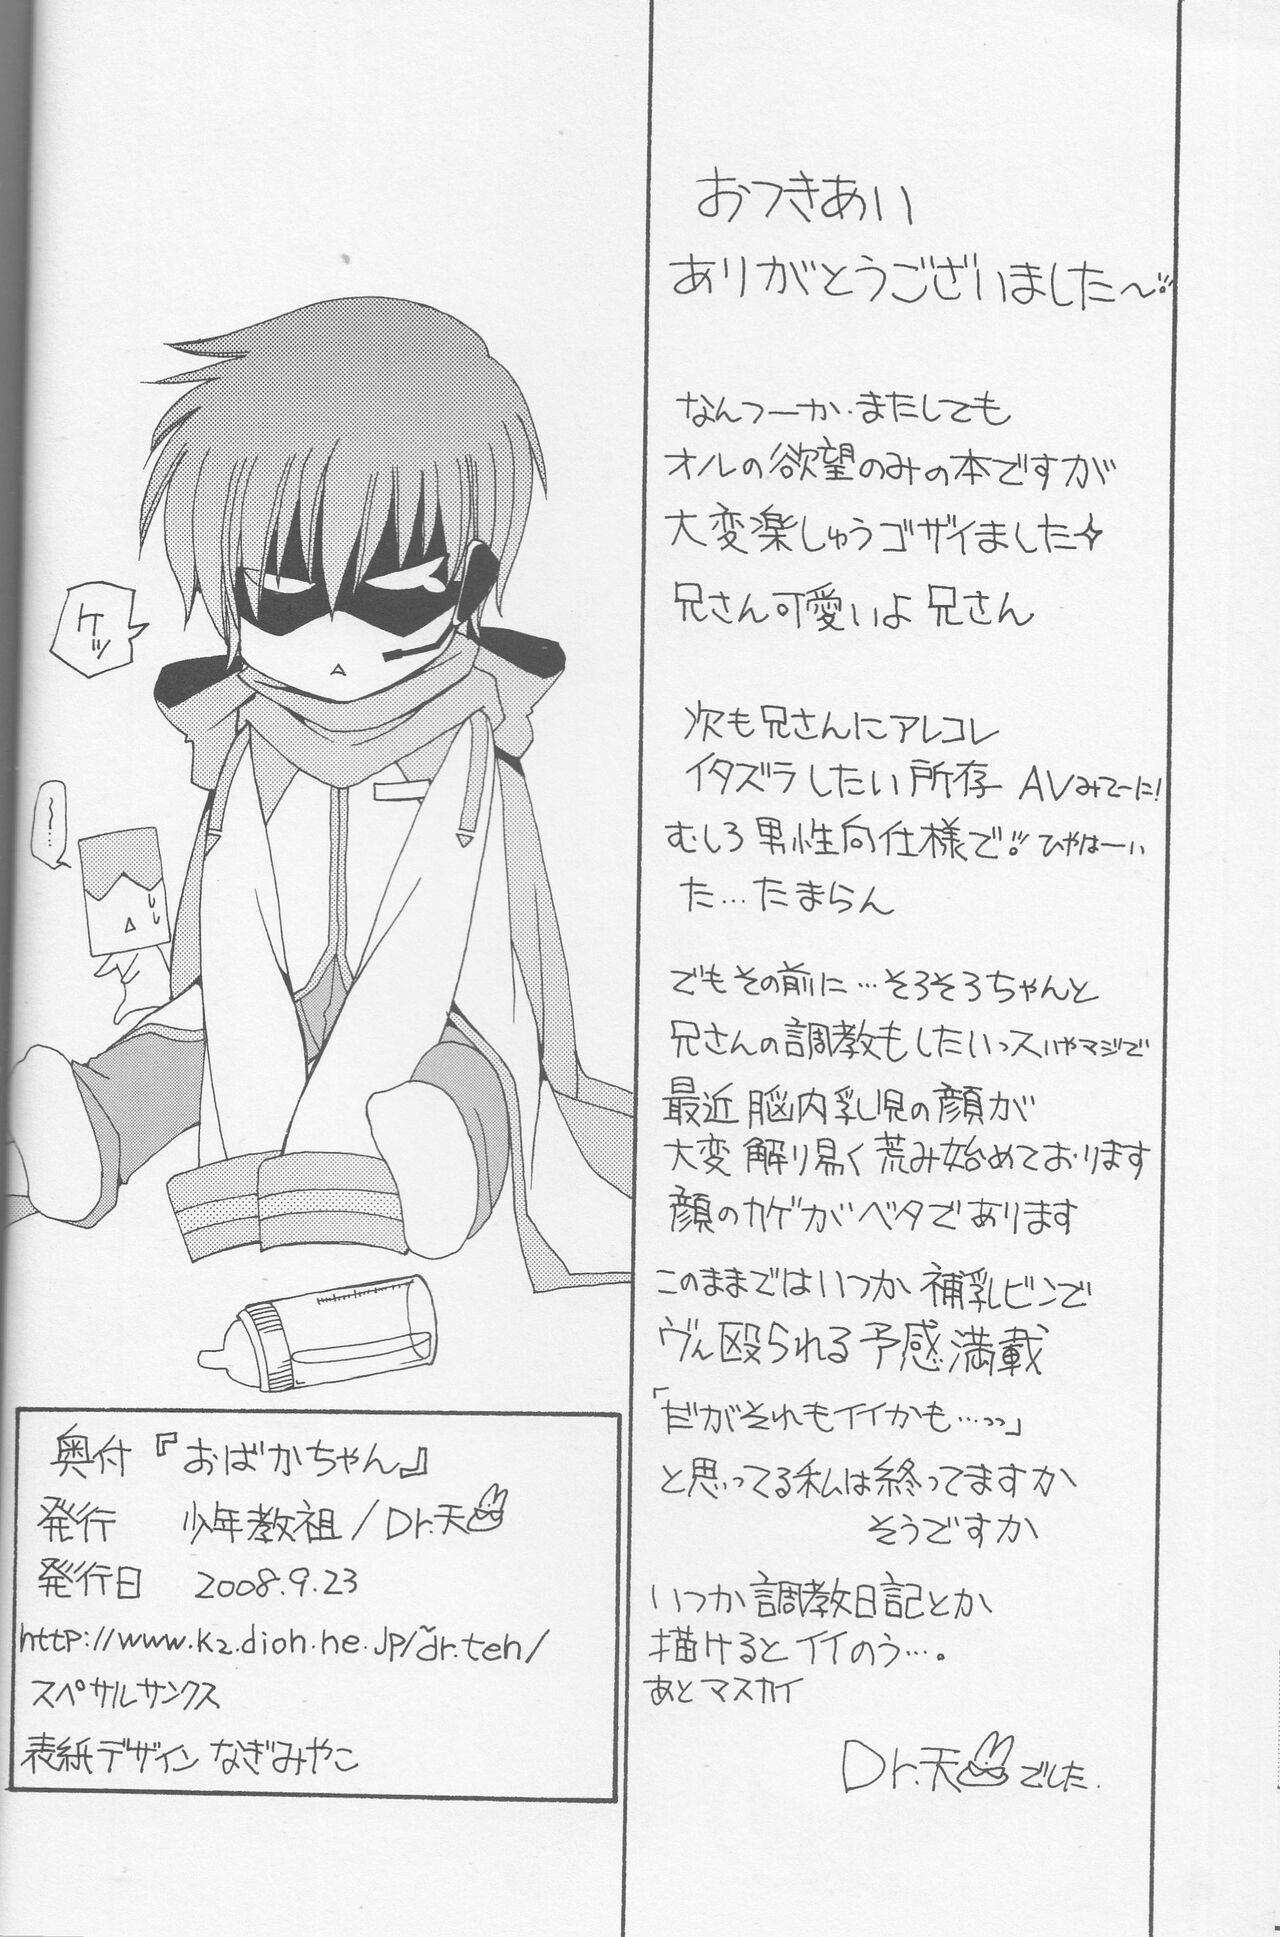 おつきあい
ありがとうございました〜!!
なんつーか・またしても
オルの欲望のみの本ですが
大変楽しゅうゴザイました
兄さん可愛いよ兄さん
次も兄さんにアレコレ
イタズラしたい所存 AVみてーに!
むしろ男性向仕様で!! ひゃはーい
た…たまらん
でもその前に…そろそろちゃんと
兄さんの調教もしたいっス いやマジで
最近 脳内乳児の顔が
大変 解り易く荒み始めております
顔のカゲがベタであります
このままではいつか 補乳ビンで
ヴん殴られる予感満載
「だがそれもイイかも…っっ」
と思ってる私は終ってますか
そうですか
いつか調教日記とか
描けるとイイのう…。
あとマスカイ
Dr.天 でした.
ケッ
〜…
奥付『おばかちゃん』
発行 少年教祖/Dr.天
発行日 2008.9.23
http://www.k2.dion.ne.jp/~dr.ten/
スペサルサンクス
表紙デザイン なぎみやこ